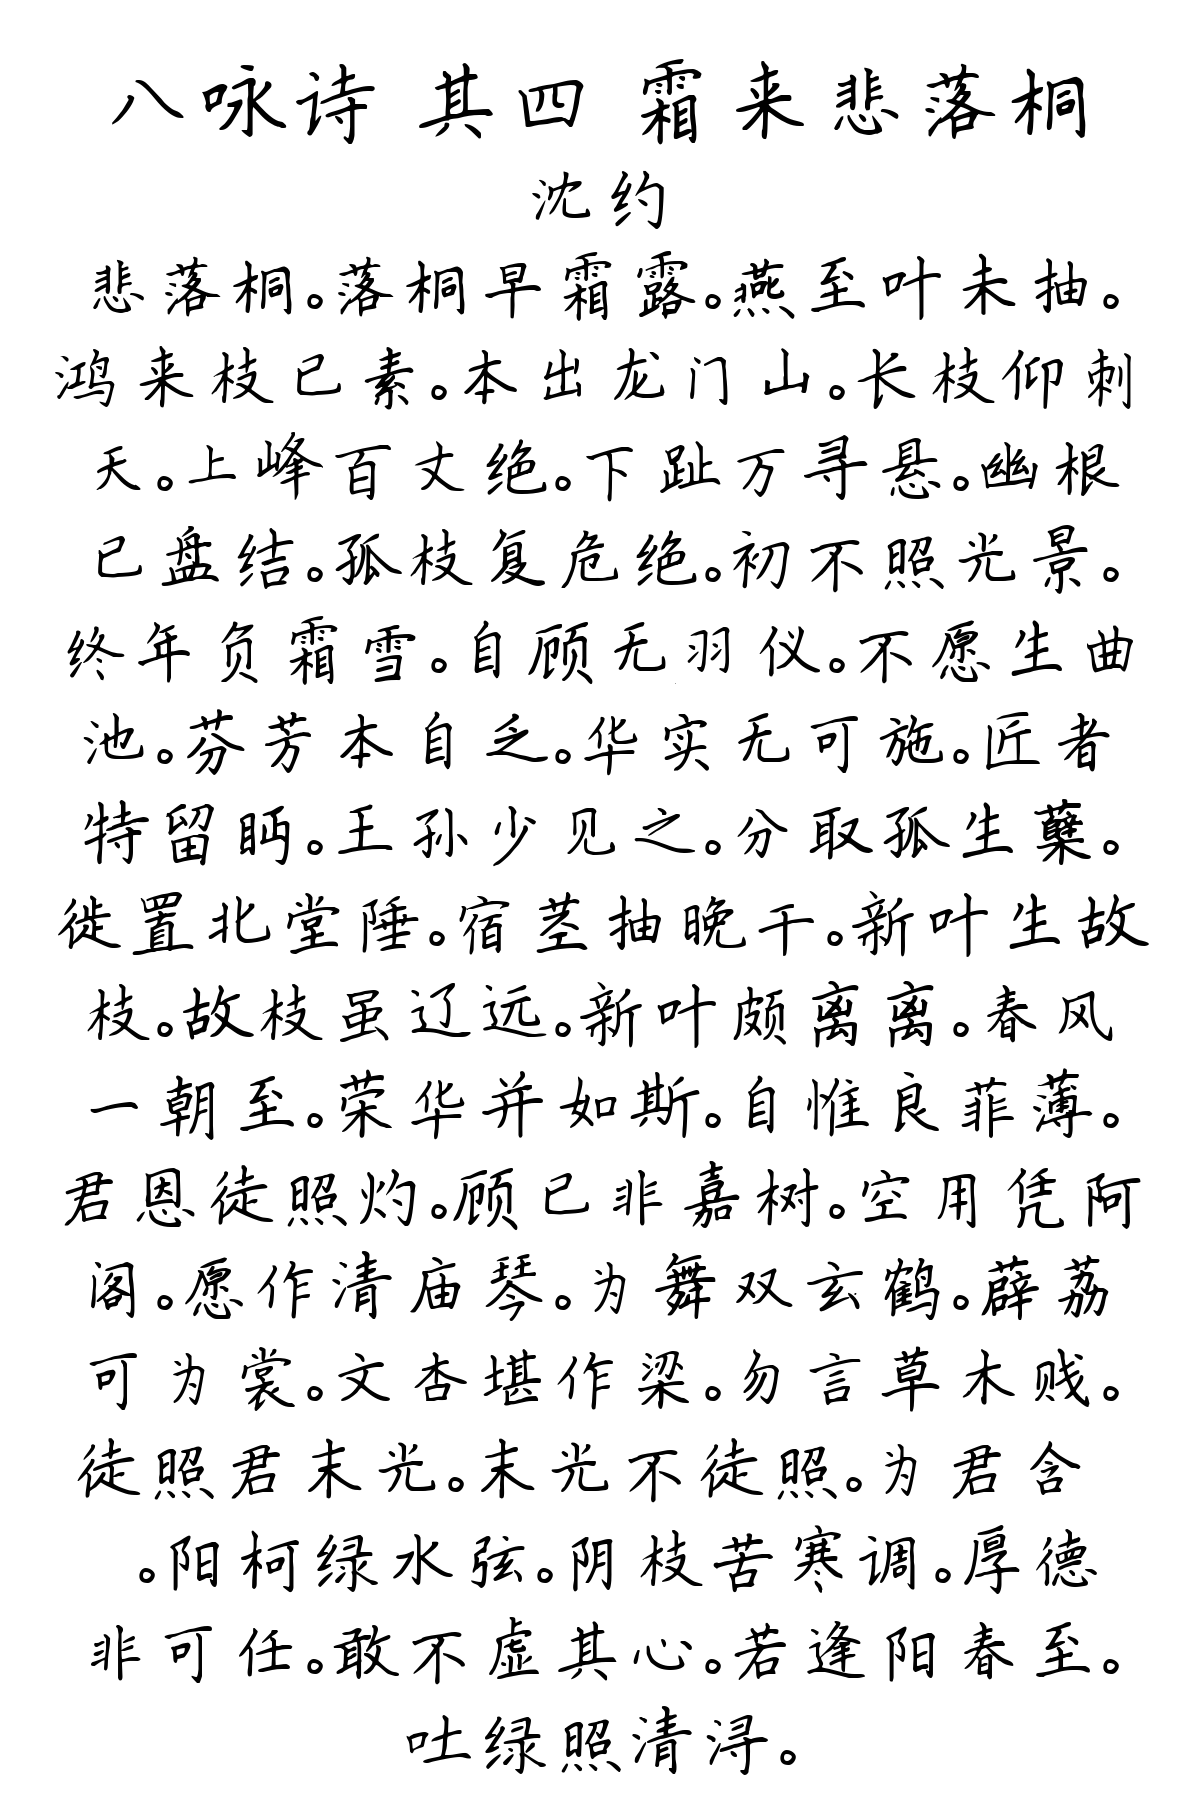 八咏诗 其四 霜来悲落桐
沈约
悲落桐。落桐早霜露。燕至叶未抽。
鸿来枝已素。本出龙门山。长枝仰刺
天。上峰百丈绝。下趾万寻悬。幽根
已盘结。孤枝复危绝。初不照光景。
终年负霜雪。自顾无羽仪。不愿生曲
池。芬芳本自乏。华实无可施。匠者
特留眄。王孙少见之。分取孤生蘖。
徙置北堂陲。宿茎抽晚干。新叶生故
枝。故枝虽辽远。新叶颇离离。春风
一朝至。荣华并如斯。自惟良菲薄。
君恩徒照灼。顾已非嘉树。空用凭阿
阁。愿作清庙琴。为舞双玄鹤。薜荔
可为裳。文杏堪作梁。勿言草木贱。
徒照君末光。末光不徒照。为君含
。阳柯绿水弦。阴枝苦寒调。厚德
非可任。敢不虚其心。若逢阳春至。
吐绿照清浔。